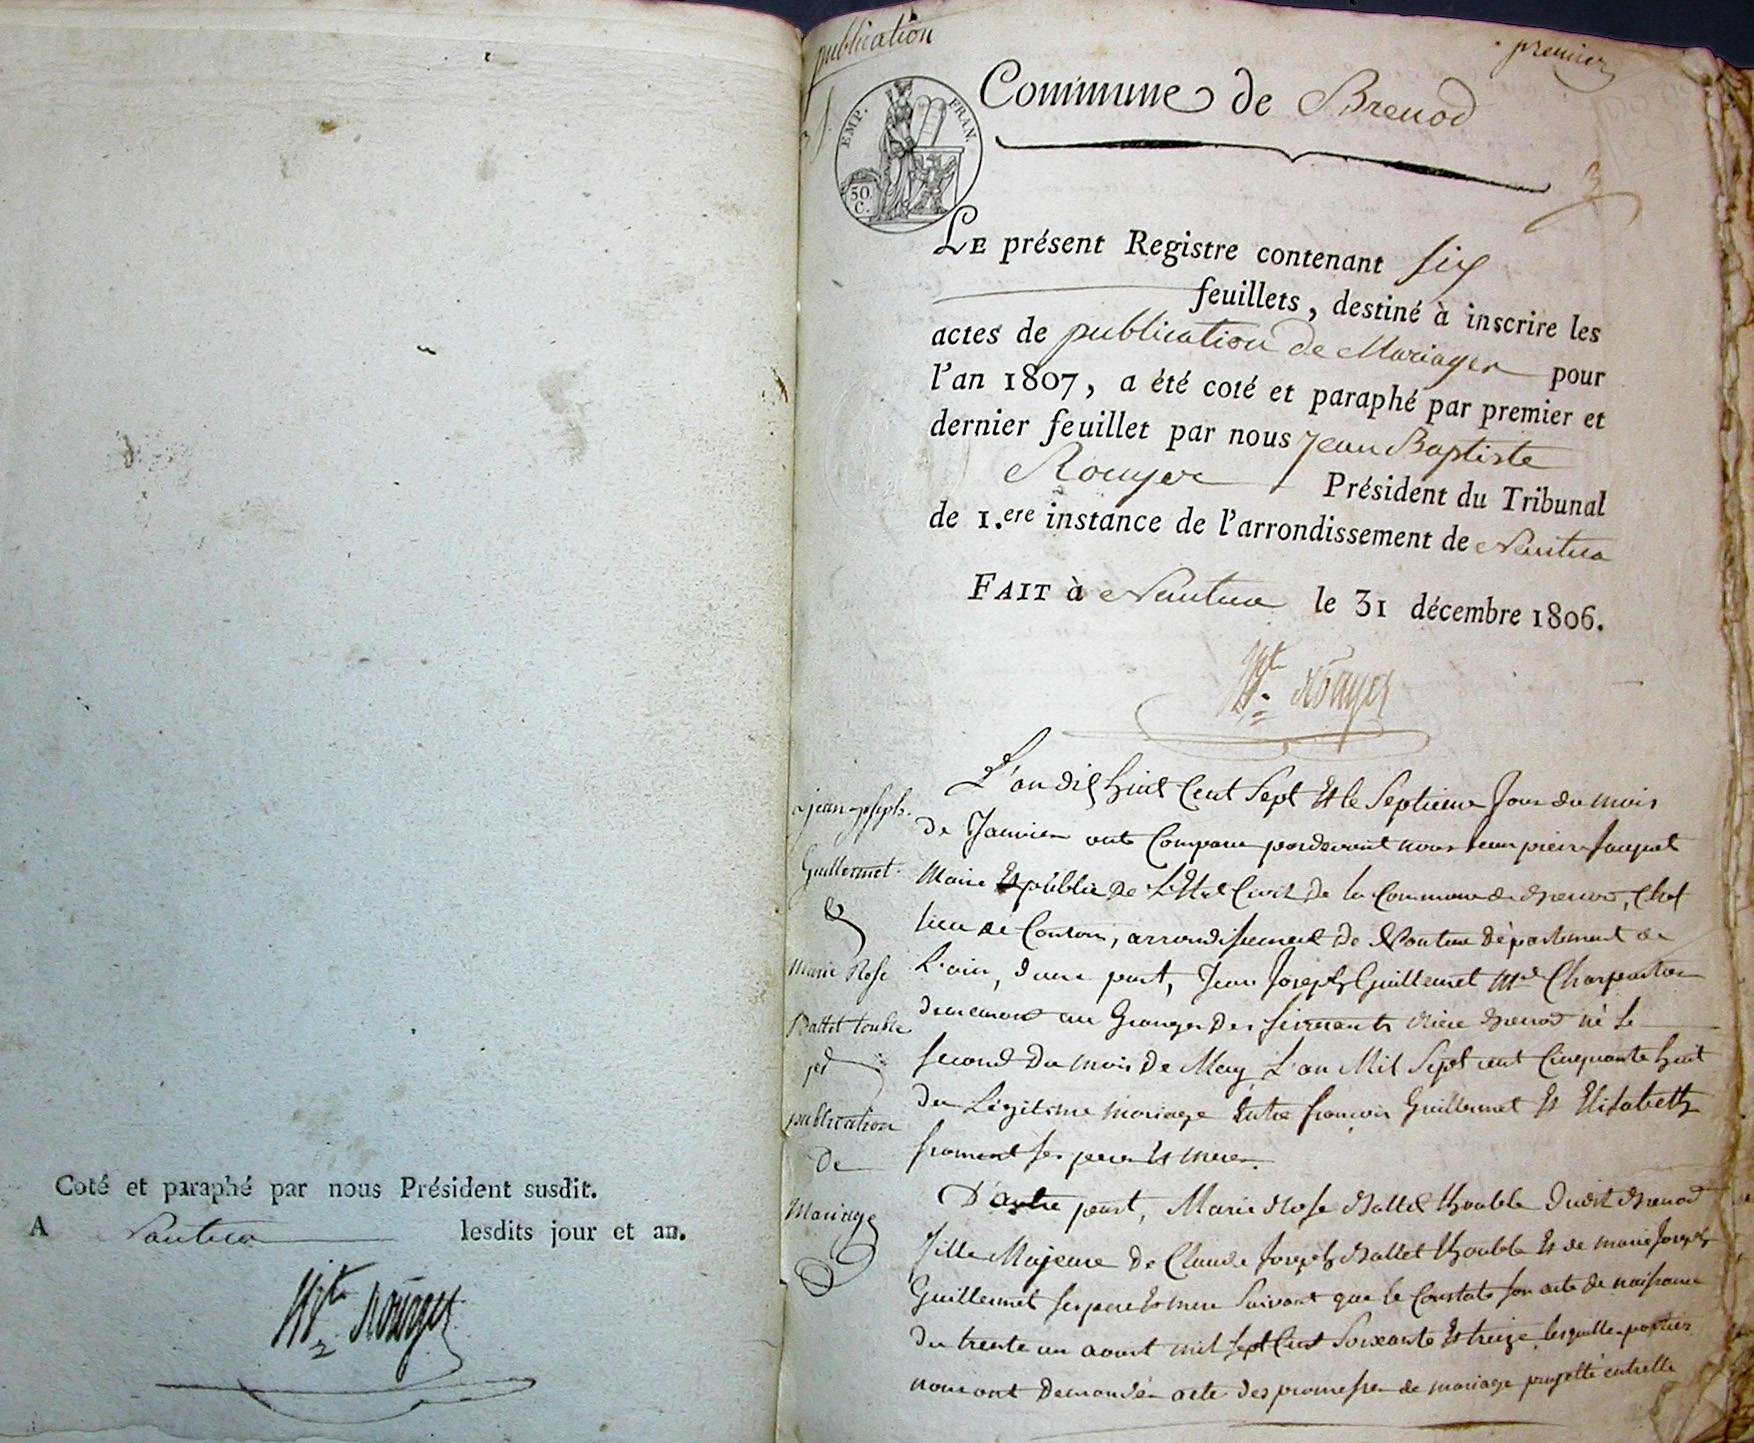 Coté et paraphé par nous Président susdit.
A Nantua lesdits jour et an.
J Bte Rouyer
publication
premier
EMP. FRAN.
50 C.
Commune de Brenod
3
LE présent Registre contenant six
feuillets, destiné à inscrire les
actes de publication de Mariages pour
l'an 1807, a été coté et paraphé par premier et
dernier feuillet par nous Jean Baptiste
Rouyer Président du Tribunal
de 1.ere instance de l'arrondissement de Nantua
FAIT à Nantua le 31 décembre 1806.
J Bte Rouyer
jean joseph
Guillermet
&
Marie Rose
Ballet touble
publication
De
Mariage
L'an dix huit Cent Sept Et le Septieme Jour du mois
de Janvier ont Comparu pardevant nous Jean pierre Jacquet
Maire Et publie De L'Etat Civil De la Commune de Brenod, Chef
lieu de Canton, arrondissement De Nantua Département de
L'ain, d'une part, Jean Joseph Guillermet Md Charpentier
demeurant au Granges Des riere Brenod né le
second Du mois De May L'an Mil Sept cent Cinquante huit
du Légitime mariage Entre françois Guillermet Et Elisabeth
froment ses pere Et mere.
D'autre part, Marie Rose Ballet thouble Dudit Brenod
fille Majeure De Claude Joseph Ballet thouble Et de marie Joseph
Guillermet ses pere Et mere Suivant que le Constate son acte de naissance
du trente un aoust mil sept Cent Soixante Et treize, lesquelles parties
nous ont demandés acte des promesses de mariage projetté entrelle